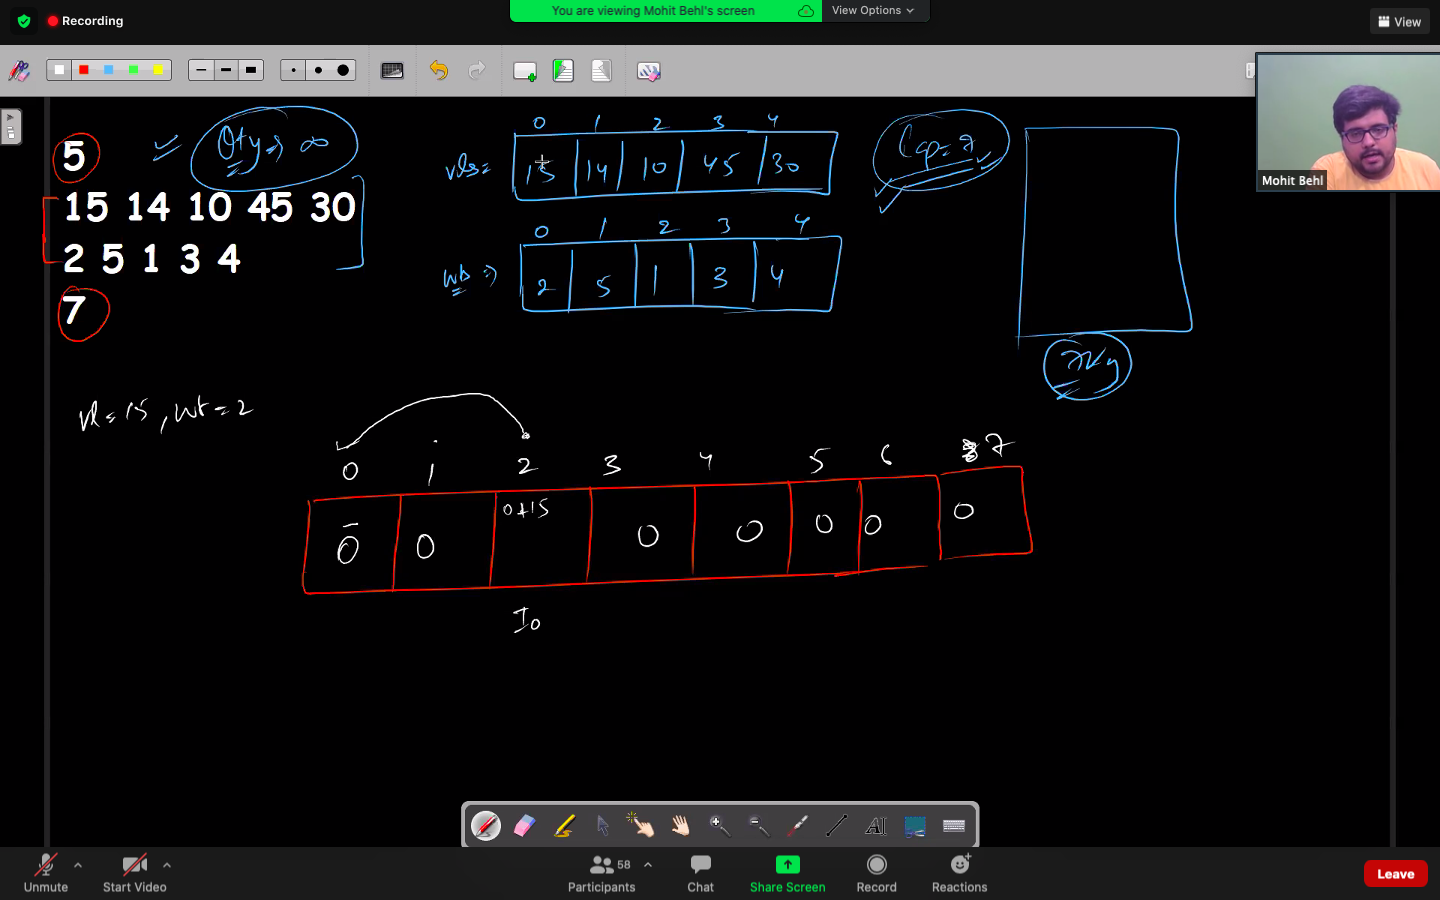 Recording
You are viewing Mohit Behl's screen
View Options
View
Mohit Behl
5
15 14 10 45 30
2 5 1 3 4
7
Qty => ∞
0 1 2 3 4
vls = 15 14 10 45 30
0 1 2 3 4
wts => 2 5 1 3 4
Cap = 7
7Kg
vl = 15, wt = 2
0 1 2 3 4 5 6 7
0 0 0+15 0 0 0 0 0
I0
AI
Unmute
Start Video
Participants 58
Chat
Share Screen
Record
Reactions
Leave